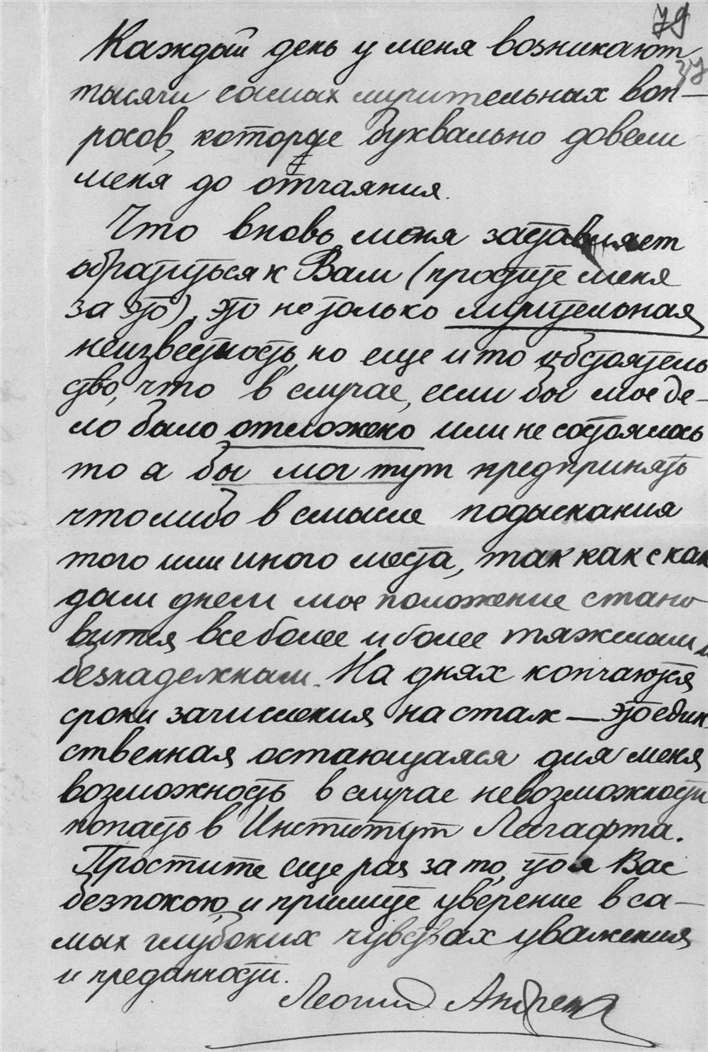 79
37
Каждый день у меня возникают
тысячи самых мучительных воп-
росов, которые буквально довели
меня до отчаяния.
Что вновь меня заставляет
обратиться к Вам (простите меня
за это), это не только мучительная
неизвестность, но еще и то обстоятель
ство, что в случае, если бы мое де-
ло было отложено или не состоялось
то я бы мог тут предпринять
что либо в смысле подыскания
того или иного места, так как с каж
дым днем мое положение стано
вится все более и более тяжелым и
безнадежным. На днях кончаются
сроки зачисления на стаж — это един
ственная остающаяся для меня
возможность в случае невозможности
попасть в Институт Лесгафта.
Простите еще раз за то, что я Вас
безпокою, и примите уверение в са-
мых глубоких чувствах уважения
и преданности.
Леонид Андреев